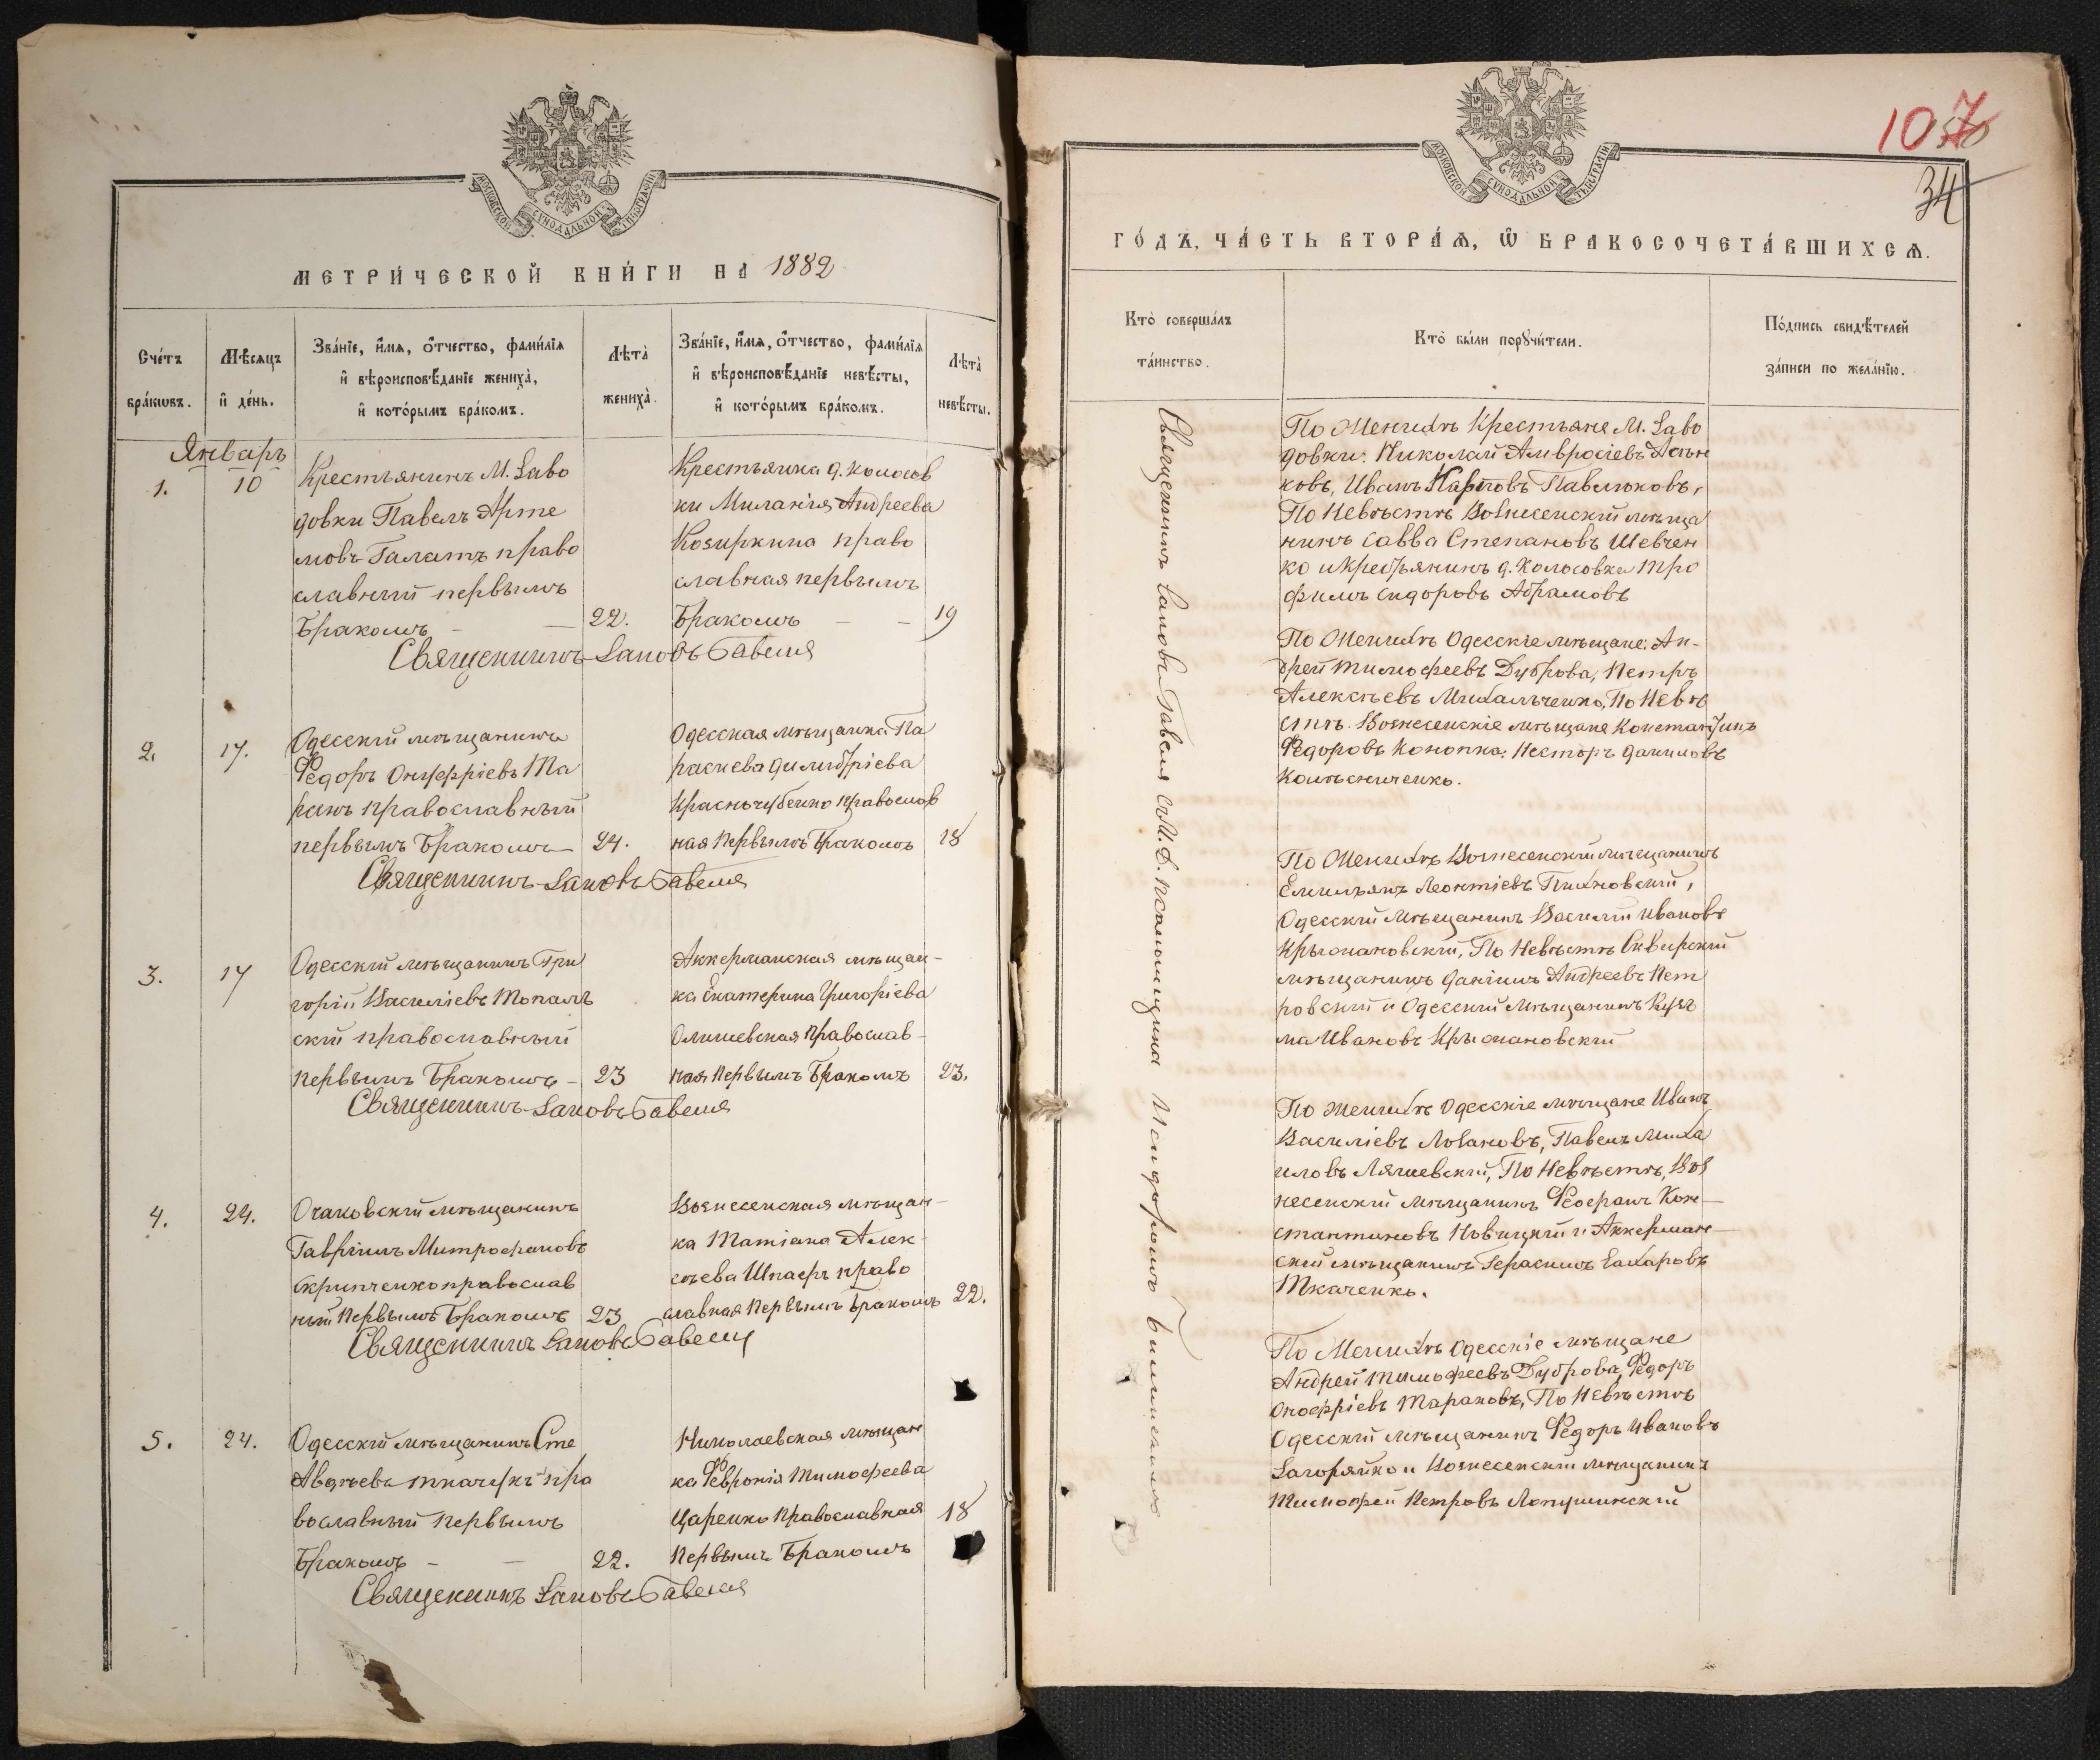 МОСКОВСКОЙ СѴНОДАЛЬНОЙ ТИПОГРАФІИ
МЕТРИ́ЧЕСКОЙ КНИ́ГИ НА 1882
Сче́тъ бра́кѡвъ.
Мѣ́сяцъ и҆ де́нь.
Зва́нїе, и҆́мѧ, ѻ҆́тчество, фами́лїѧ
и҆ вѣроисповѣ́данїе жениха̀,
и҆ кото́рымъ бра́комъ.
Лѣта̀ жениха̀.
Зва́нїе, и҆́мѧ, ѻ҆́тчество, фами́лїѧ
и҆ вѣроисповѣ́данїе невѣ́сты,
и҆ кото́рымъ бра́комъ.
Лѣта̀ невѣ́сты.
Январь
1.
10
Крестьянинъ М. Заво
довки Павелъ Арте
мовъ Галатъ право
славный первымъ
бракомъ
22.
Крестьянка д. Колосов
ки Миланія Андреева
Козиркина право
славная первымъ
бракомъ
19
Священникъ Іаковъ Бавеля
2.
17.
Одесскій мѣщанинъ
Федоръ Онуфріевъ Та
ранъ православный
первымъ бракомъ
24.
Одесская мѣщанка Па
раскева Димитріева
Красночубенко православ
ная первымъ бракомъ
18
Священникъ Іаковъ Бавеля
3.
17
Одесскій мѣщанинъ Гри
горій Василіевъ Топаль
скій православный
первымъ бракомъ
23
Аккерманская мѣщан-
ка Екатерина Григоріева
Олишевская православ-
ная первымъ бракомъ
23.
Священникъ Іаковъ Бавеля
4.
24.
Очаковскій мѣщанинъ
Гавріилъ Митрофановъ
Скрипченко православ
ный первымъ бракомъ
23
Вознесенская мѣщан-
ка Татіана Алек
сѣева право
славная первымъ бракомъ
22.
Священникъ Іаковъ Бавеля
5.
24.
Одесскій мѣщанинъ Сте
Авдѣевъ пра
вославный первымъ
бракомъ
22.
Николаевская мѣщан
ка Февронія Тимофеева
Царенко православная
первымъ бракомъ
18
Священникъ Іаковъ Бавеля
МОСКОВСКОЙ СѴНОДАЛЬНОЙ ТИПОГРАФІИ
107
34
ГО́ДЪ, ЧА́СТЬ ВТОРА́Ѧ, Ѽ БРАКОСОЧЕТА́ВШИХСѦ.
Кто̀ соверша́лъ
та́инство.
Кто̀ бы́ли порꙋчи́тели.
По́дпись свидѣ́телей
за́писи по жела́нїю.
Священникъ Іаковъ Бавеля съ И. Д. псаломщика Исидоромъ
По Женихѣ Крестьяне М. Заво
довки: Николай Амвросіевъ
ковъ, Иванъ Карповъ Павлюковъ,
По Невѣстѣ Вознесенскій мѣща
нинъ Савва Степановъ Шевчен
ко и Крестьянинъ д. Колосовки Тро
фимъ Сидоровъ Абрамовъ
По Женихѣ Одесскіе мѣщане: Ан-
дрей Тимофеевъ Дуброва, Петръ
Алексѣевъ Михальченко, По Невѣ
стѣ Вознесенскіе мѣщане Константинъ
Федоровъ Конопка, Несторъ Даниловъ
Колѣсниченко.
По Женихѣ Вознесенскій мѣщанинъ
Емильянъ Леонтіевъ Пихновскій,
Одесскій мѣщанинъ Василій Ивановъ
Крыжановскій, По Невѣстѣ Сквирскій
мѣщанинъ Даніилъ Андреевъ Пет
ровскій и Одесскій мѣщанинъ Кузь
ма Ивановъ Крыжановскій
По Женихѣ Одесскіе мѣщане Иванъ
Василіевъ Лозановъ, Павелъ Миха
иловъ Ляшевскій, По Невѣстѣ, Воз
несенскій мѣщанинъ Феофанъ Кон-
стантиновъ Новицкій и Аккерман-
скій мѣщанинъ Герасимъ Захаровъ
Ткаченко.
По Женихѣ Одесскіе мѣщане
Андрей Тимофеевъ Дуброва, Федоръ
Онофріевъ Тарановъ, По Невѣстѣ
Одесскій мѣщанинъ Федоръ Ивановъ
Загоряйко и Вознесенскій мѣщанинъ
Тимофей Петровъ Лопушинскій